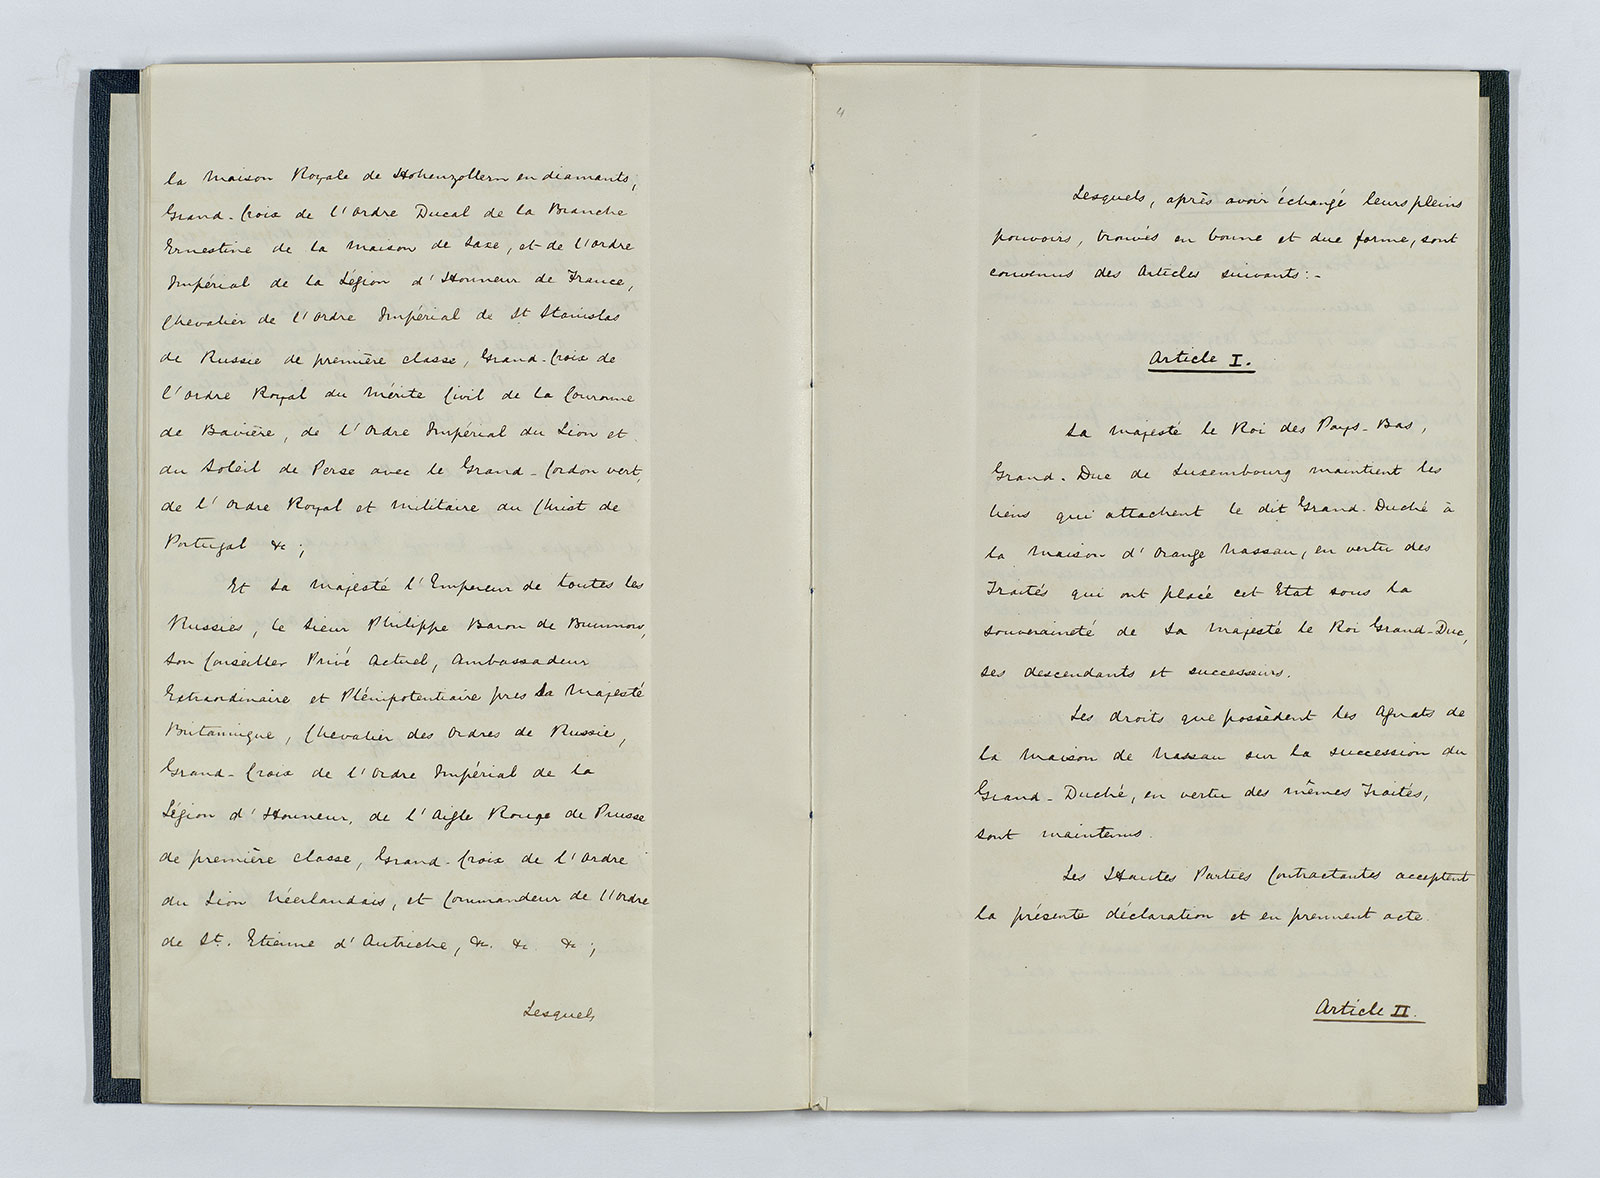 la Maison Royale de Hohenzollern en diamants,
Grand-Croix de l'Ordre Ducal de la Branche
Ernestine de la Maison de Saxe, et de l'Ordre
Impérial de la Légion d'Honneur de France,
Chevalier de l'Ordre Impérial de St Stanislas
de Russie de première classe, Grand-Croix de
l'Ordre Royal du Mérite Civil de la Couronne
de Bavière, de l'Ordre Impérial du Lion et
du Soleil de Perse avec le Grand-Cordon vert,
de l'Ordre Royal et Militaire du Christ de
Portugal &c;
Et Sa Majesté l'Empereur de toutes les
Russies, le Sieur Philippe Baron de Brunnow,
Son Conseiller Privé Actuel, Ambassadeur
Extraordinaire et Plénipotentiaire près Sa Majesté
Britannique, Chevalier des Ordres de Russie,
Grand-Croix de l'Ordre Impérial de la
Légion d'Honneur, de l'Aigle Rouge de Prusse
de première classe, Grand-Croix de l'Ordre
du Lion Néerlandais, et Commandeur de l'Ordre
de St. Etienne d'Autriche, &c. &c. &c;
Lesquels
4
Lesquels, après avoir échangé leurs pleins
pouvoirs, trouvés en bonne et due forme, sont
convenus des Articles suivants:-
Article I.
Sa Majesté le Roi des Pays-Bas,
Grand-Duc de Luxembourg maintient les
liens qui attachent le dit Grand-Duché à
la Maison d'Orange Nassau, en vertu des
Traités qui ont placé cet Etat sous la
souveraineté de Sa Majesté le Roi Grand-Duc,
ses descendants et successeurs.
Les droits que possèdent les Agnats de
la Maison de Nassau sur la succession du
Grand-Duché, en vertu des mêmes Traités,
sont maintenus.
Les Hautes Parties Contractantes acceptent
la présente déclaration et en prennent acte.
Article II.